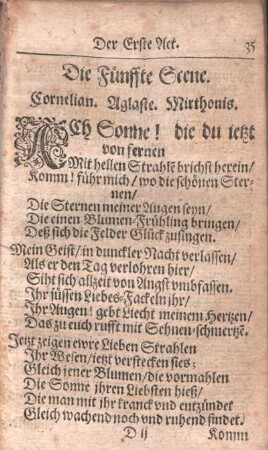 Der Erste Act. 35
Die Fünffte Scene.
Cornelian. Aglaste. Mirthonis.
ACh Sonne! die du ietzt
von fernen
Mit hellen Strahlē brichst herein/
Komm! führ mich/ wo die schönen Ster-
nen/
Die Sternen meiner Augen seyn/
Die einen Blumen-Frühling bringen/
Deß sich die Felder Glück zusingen.
Mein Geist/ in dunckler Nacht verlassen/
Als er den Tag verlohren hier/
Siht sich allzeit von Angst umbfassen.
Ihr süssen Liebes-Fackeln ihr/
Ihr Augen! gebt Liecht meinem Hertzen/
Das zu euch rufft mit Sehnen-schmertzē.
Jetzt zeigen ewre Lieben Strahlen
Ihr Wesen/ ietzt verstecken sies;
Gleich jener Blumen/ die vormahlen
Die Sonne ihren Liebsten hieß/
Die man mit ihr kranck und entzündet
Gleich wachend noch und ruhend findet.
D ij Komm